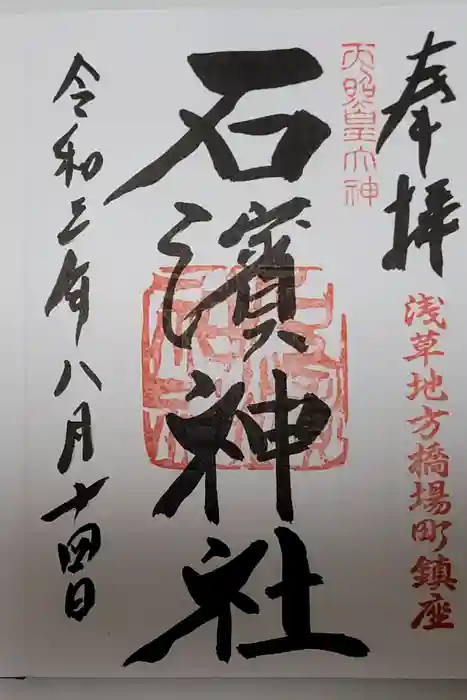 奉拝
浅草地方橋場町鎮座
天照皇大神
石濱神社
令和三年八月十四日